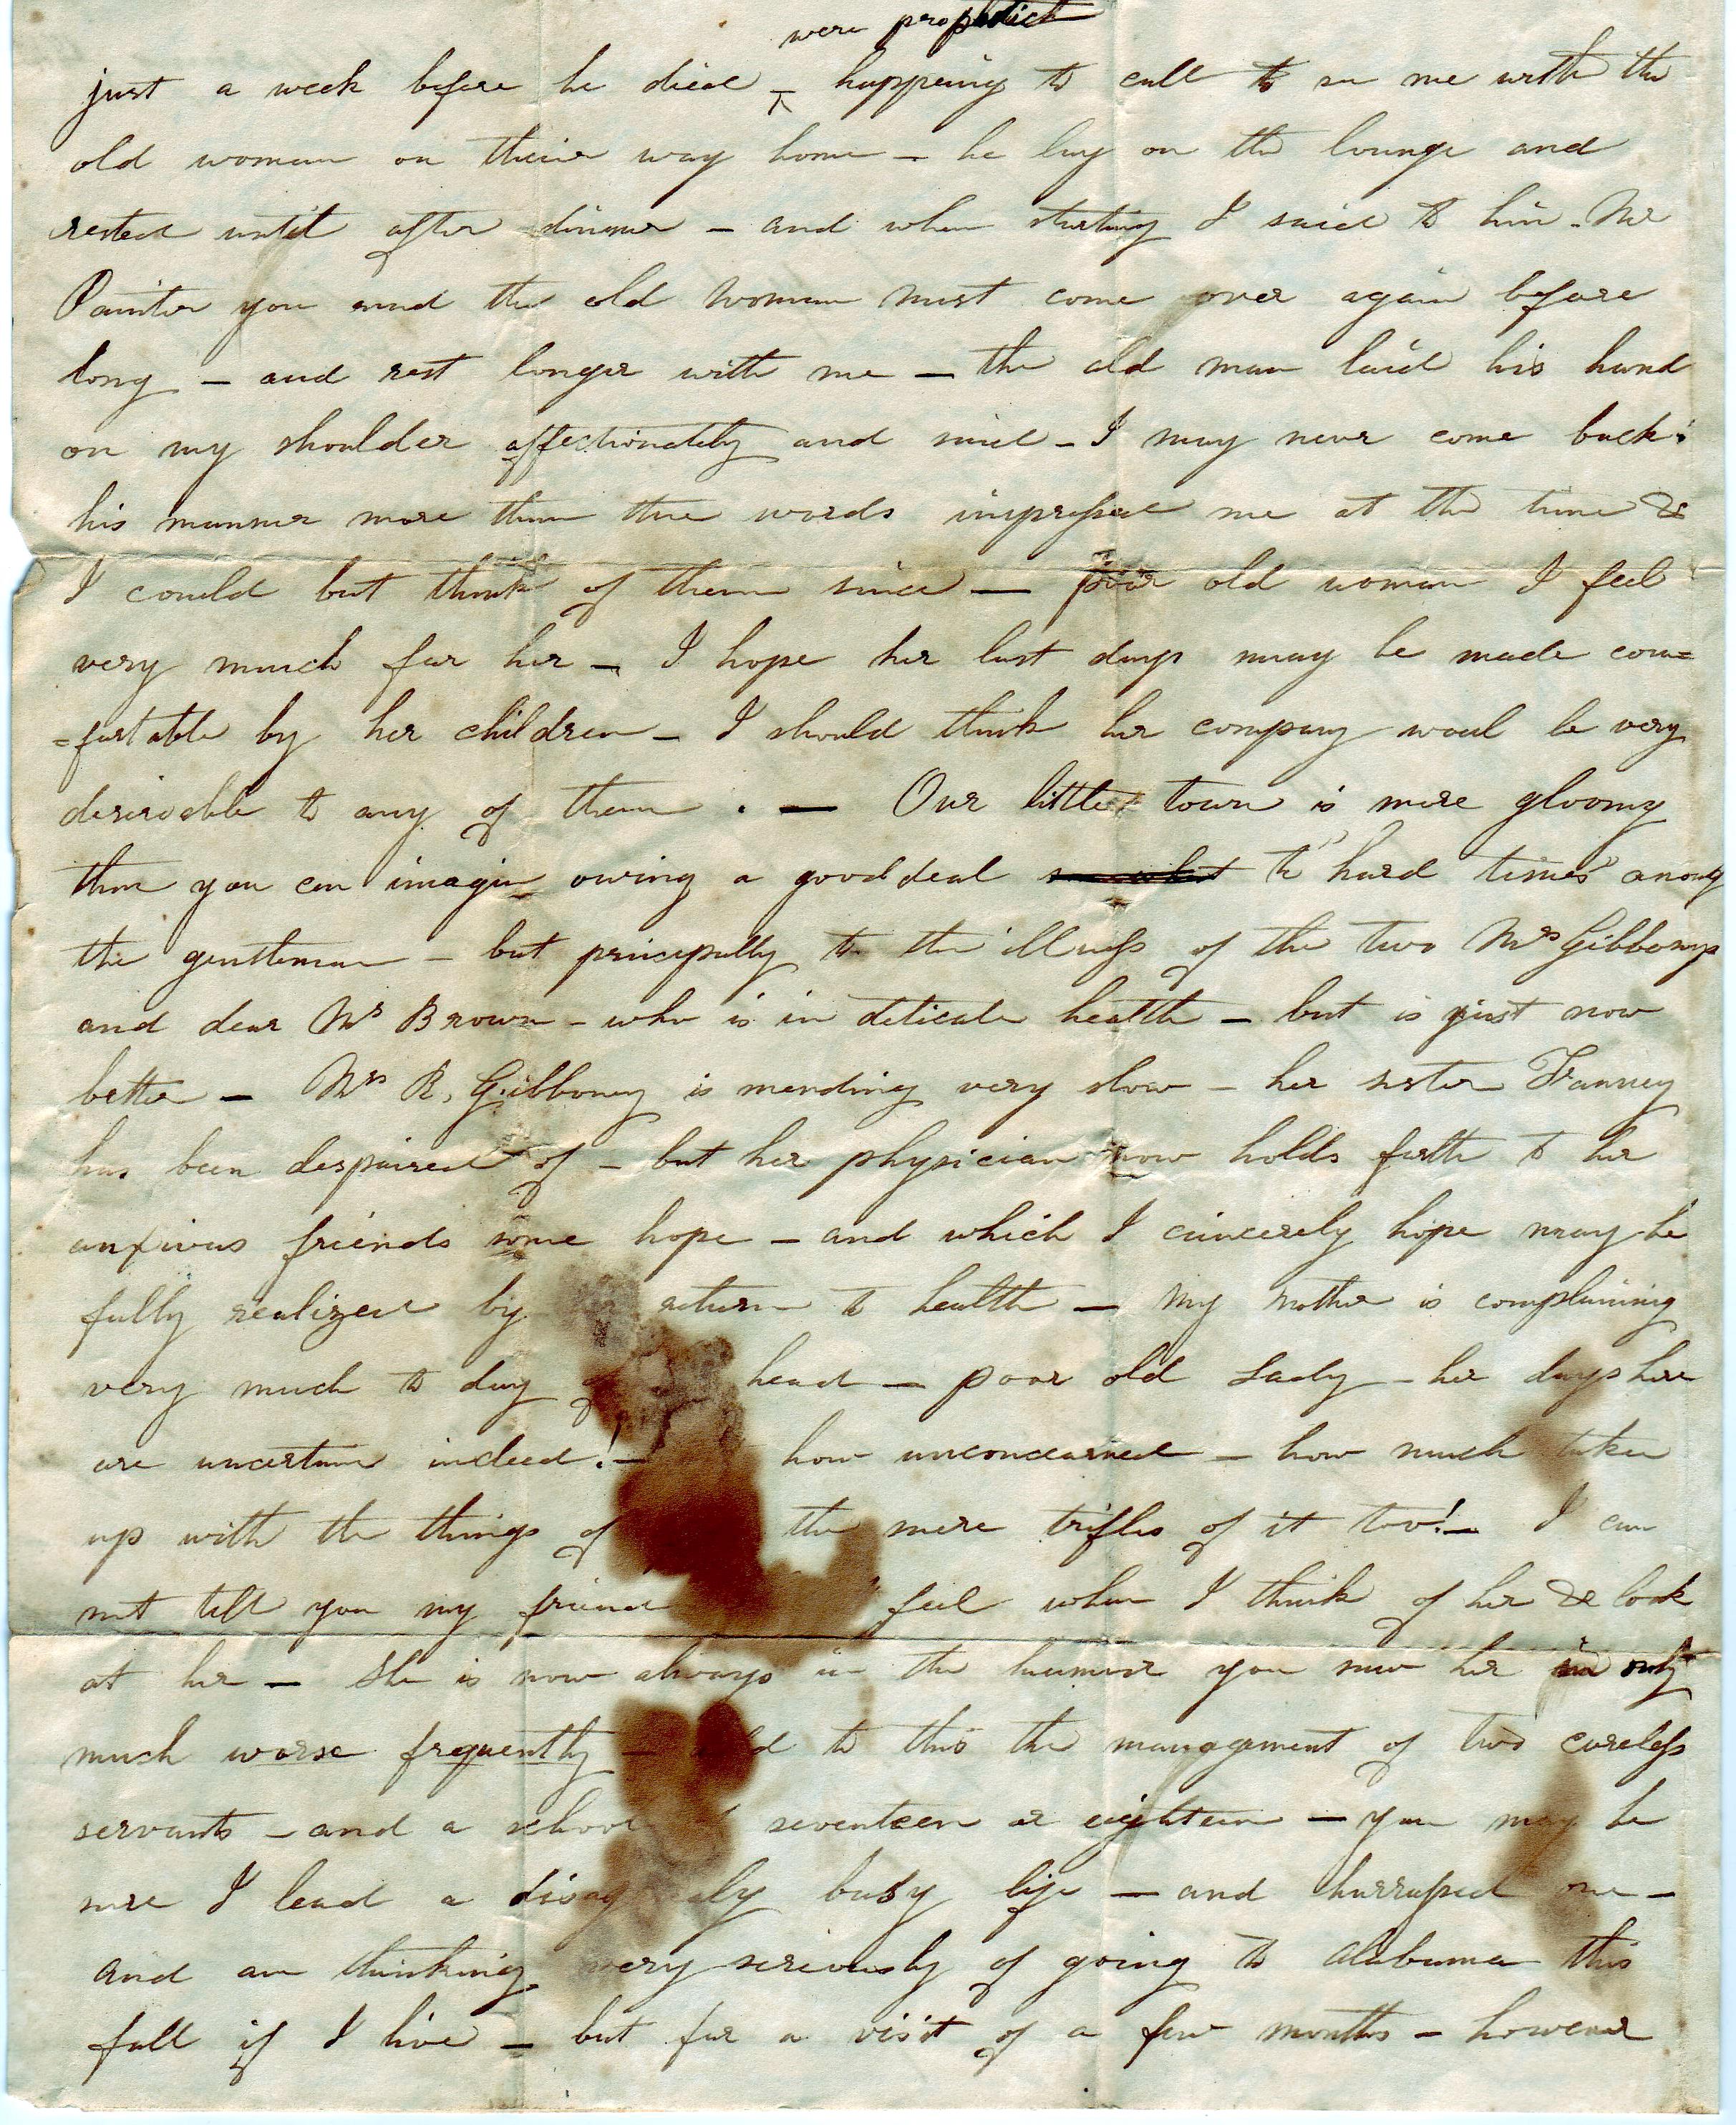 were prophetick
just a week before he died – ^ happening to call to see me with the
old woman on their way home – he lay on the lounge and
rested until after dinner – and when starting I said to him – Mr
Painter you and the old woman must come over again before
long – and rest longer with me – the old man laid his hand
on my shoulder affectionately and said – I may never come back:
his manner more than the words impressed me at the time &
I could but think of them since — poor old woman I feel
very much for her – I hope her last days may be made com=
=fortable by her children – I should think her company woul be very
desireable to any of them . — Our little town is more gloomy
than you can imagin owing a good deal to "hard times" among
the gentleman – but principally to the illness of the two Mrs Gibboneys
and dear Mrs Brown – who is in delicate health – but is just now
better – Mrs R. Gibboney is mending very slow – her sister Franney
has been despaired of – but her physician now holds forth to her
anxious friends some hope – and which I cincerely hope may be
fully realized by return to health — My mother is complaining
very much to day head — poor old Lady – her days here
are uncertain indeed! – how unconcearned – how much taken
up with the things of the mere trifles of it too! – I can
not tell you my friend feel when I think of her & look
at her – She is now always in the humour you saw her in only
much worse frequently – add to this the management of two careless
servants – and a school of seventeen or eighteen – you may be
sure I lead a disag ely busy life — and harrassed one –
and am thinking very seriously of going to Alabama this
fall if I live – but for a visit of a few months – however